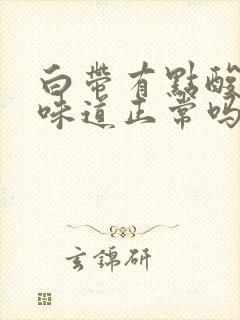 白带有點酸
味道正常吗
玄錦研